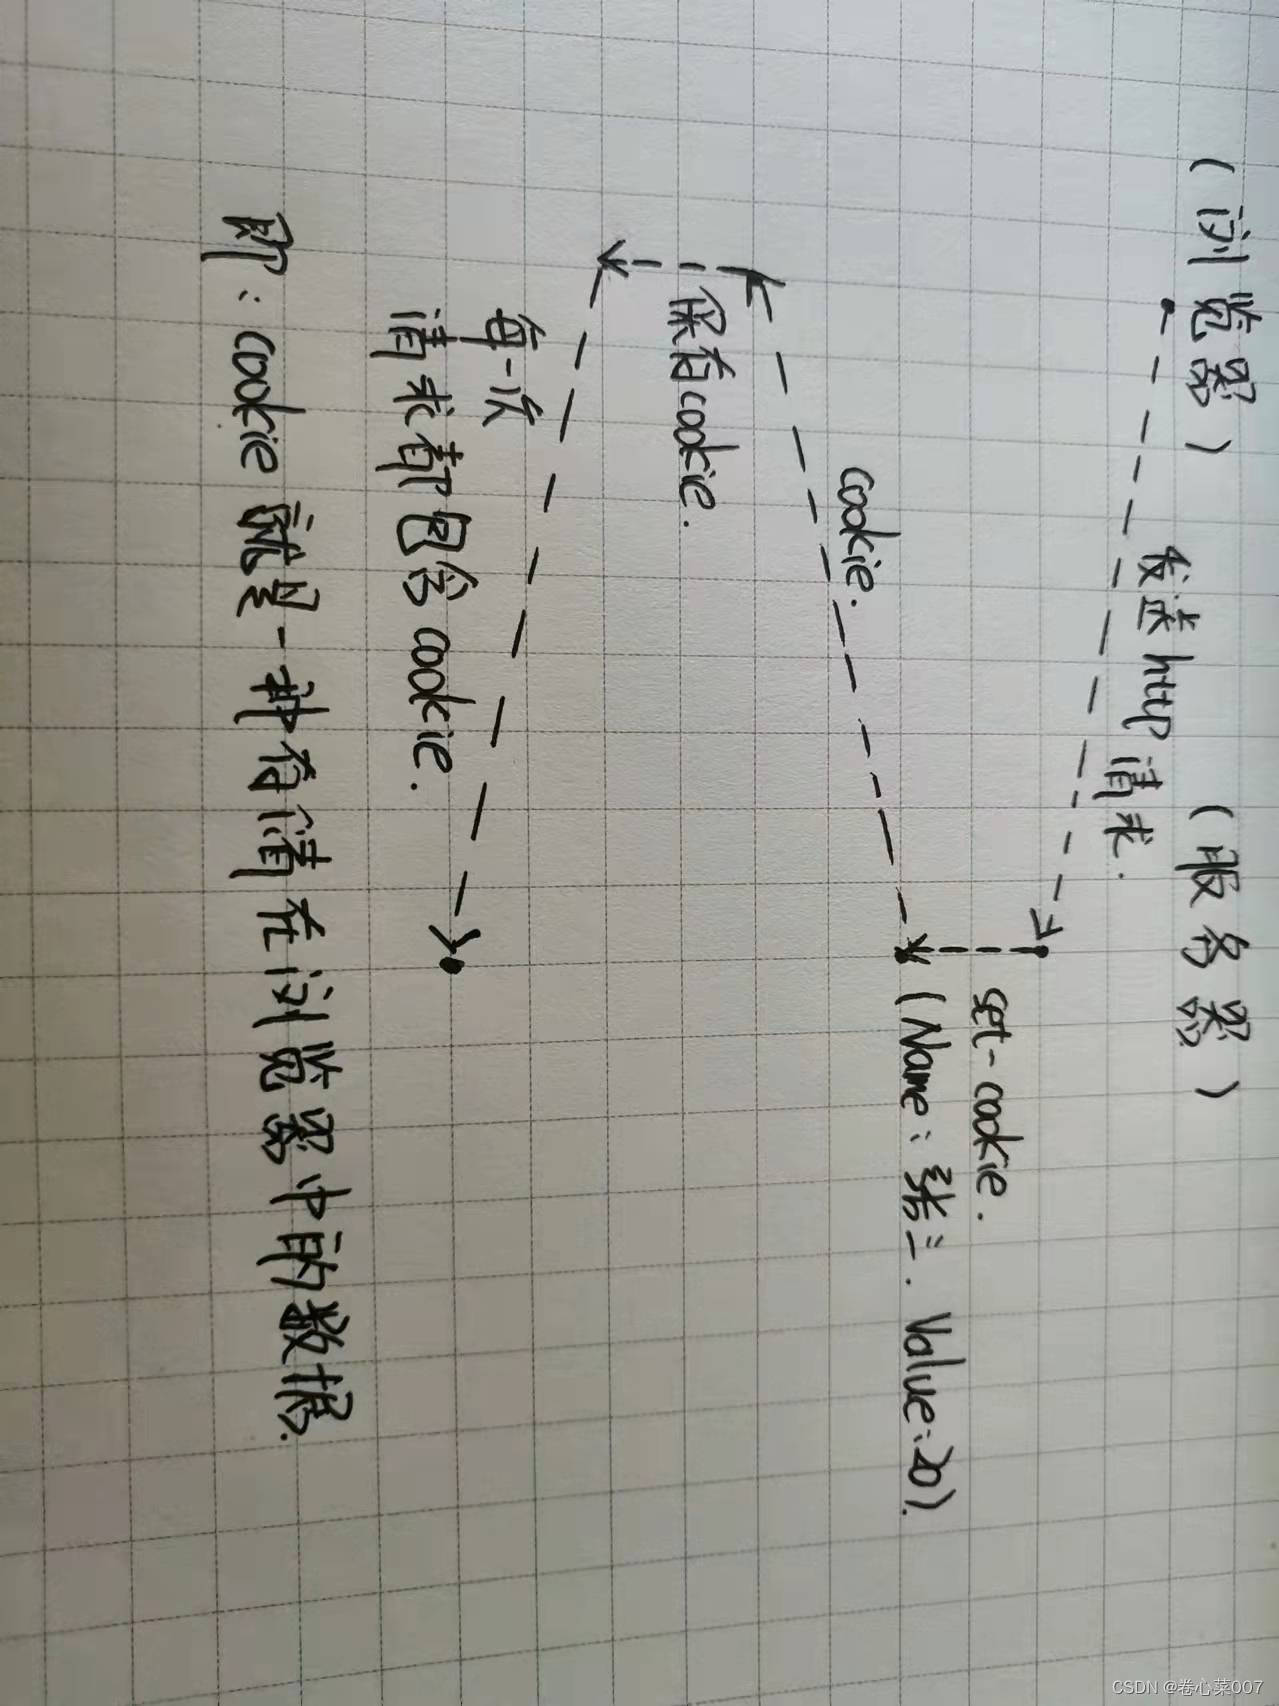 (浏览器) (服务器)
发送http请求.
set-cookie.
(Name:张三. Value:20).
cookie.
保存cookie.
每一次
请求都包含cookie.
即:cookie就是一种存储在浏览器中的数据.
CSDN @卷心菜007